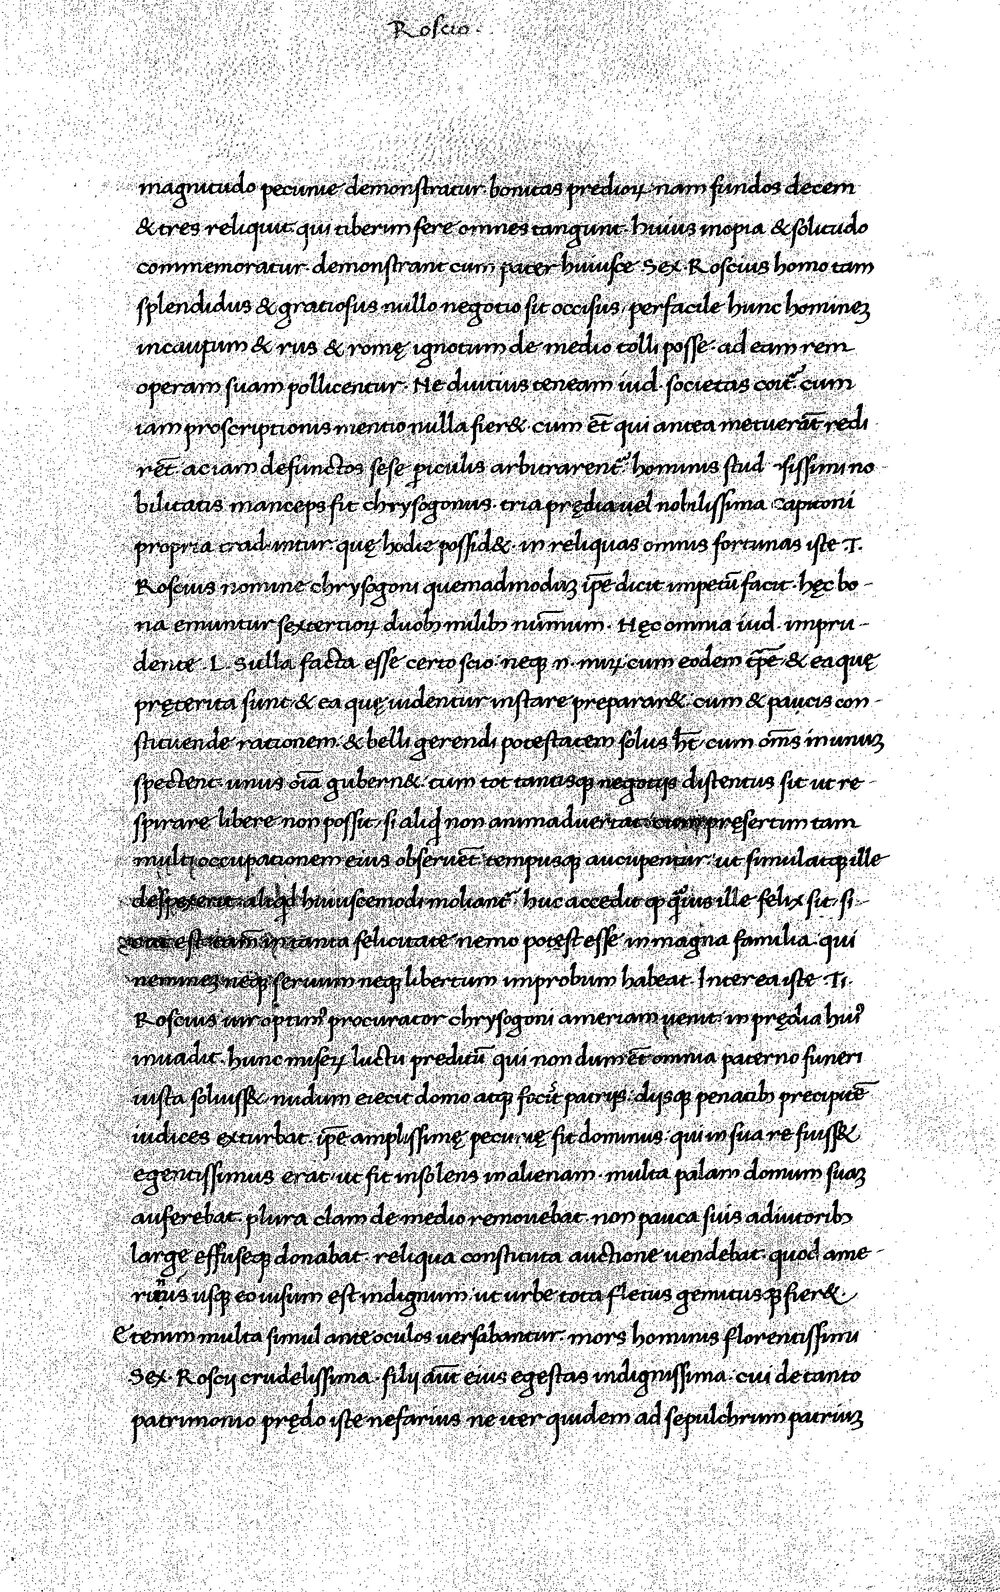 Roscio.
magnitudo pecunie demonstratur. bonitas predioꝝ nam fundos decem
& tres reliquit. qui tiberim fere omnes tangunt. huius inopia & solitudo
commemoratur. demonstrant cum pater huiusce Sex. Roscius homo tam
splendidus & gratiosus nullo negotio sit occisus, perfacile hunc homineʒ
incautum & rus & romę ignotum de medio tolli posse. ad eam rem
operam suam pollicentur. Ne diutius teneam iud. societas coit᷑. cum
iam proscriptionis mentio nulla fier&. cum eēt qui antea metuerāt redi
rēt. ac iam defunctos sese ꝑiculis arbitrarent᷑. hominis stud sissimi no-
bilitatis manceps fit chrysogonus. tria prędia uel nobilissima Capitoni
propria traduntur. quę hodie possid&. in reliquas omnis fortunas iste T.
Roscius nomine chrysogoni quemadmodaʒ ip̄e dicit impetū facit. hęc bo-
na emuntur sextertioꝝ duobꝫ milibꝫ nūmum. Hęc omnia iud. impru-
dente .L. Sulla facta esse certo scio. neqꝫ .n. miꝝ cum eodem tp̄e & ea quę
pręterita sunt & ea quę uidentur instare preparar&. cum & paucis con-
stituende rationem. & belli gerendi potestatem solus h̄t. cum om̄s in unuʒ
spectent. unus oīa gubern&. cum tot tantisqꝫ negotijs distentus sit ut re-
spirare libere non possit. si aliqď non animaduertat. cum pręsertim tam
multi occupationem eius obseruēt. tempusqꝫ aucupentur. ut simul atqꝫ ille
despexerit. aliqď huiuscemodi moliant᷑. huc accedit ꝙ qͣuis ille felix sit. si-
cut est tam̄ in tanta felicitate nemo potest esse in magna familia. qui
neminez neqꝫ seruum neqꝫ libertum improbum habeat. Interea iste .Ti.
Roscius uir optimꝰ procurator chrysogoni ameriam uenit. in prędia huiꝰ
inuadit. hunc miseꝝ luctu preditū qui non dum eēt omnia paterno funeri
iusta soluiss&. nudum eiecit domo atqꝫ focis patrijs. dijsqꝫ penatibꝫ precipitē
iudices exturbat. ip̄e amplissimę pecunię fit dominus. qui in sua re fuiss&
egentissimus erat. ut fit insolens in alienam. multa palam domum suaʒ
auferebat. plura clam de medio remouebat. non pauca suis adiutoribꝫ
large effuseqꝫ donabat. reliqua constituta auctione uendebat. quod ame-
rinis usqꝫ eo uisum est indignum. ut urbe tota fletus gemitusqꝫ fier&.
Etenim multa simul ante oculos uersabantur. mors hominis florentissimi
Sex. Roscij crudelissima. filij aūt eius egestas indignissima. cui de tanto
patrimonio prędo iste nefarius ne iter quidem ad sepulchrum patriuʒ